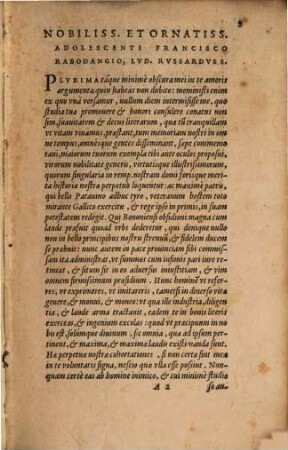 NOBILISS. ET ORNATISS.
ADOLESCENTI FRANCISCO
RABODANGIO, LVD. RVSSARDVS S.
PLVRIMA eáque minimè obscura mei in te amoris
argumenta quin habeas non dubito: meministi enim
ex quo vnà versamur, nullum diem intermisisse me, quo
studia tua promouere & honori consulere conatus non
sim, suauitatem & decus literarum, quæ tũ tranquillam
vt vitam viuamus, præstant, tum memoriam nostri in om
ne tempus, omnésque gentes disseminant, sæpe commemo
raui, maiorum tuorum exempla tibi ante oculos proposui,
virorum nobilitate generis, virtutisque illustrissimorum,
quorum singularia in remp. nostram domi forisque meri
ta historia nostra perpetuò loquentur: ac maximè patrui,
qui bello Patauino adhuc tyro, veteranum hostem toto
mirante Gallico exercitu, & rege ipso in primis, in suam
potestatem redegit. Qui Bononiensi obsidioni magna cum
laude præfuit quoad vrbs dederetur, qui denique nullo
non in bello principibus nostris strenuã, & fidelem ducem
se probauit: nunc autem in pace prouinciam sibi commissam
ita administrat, vt summos cum iuuenis pari iure re-
tineat, & situm sit in eo aduersus iniustitiam, & vim
omnem firmissimum præsidium. Hunc hominẽ vt refer-
res, vt exprimeres, vt imitareris, tametsi in diuerso vitæ
genere, & monui, & moneo: vt qua ille industria, diligen
tia, & laude arma tractauit, eadem te in bonis literis
exerceas, & ingenium excolas: quod vt præcipuum in no
bis est, solumque diuinum, sic omnia, quæ ad ipsum perti-
nent, & maxima, & maxima laude existimanda sunt.
Hæ perpetuæ nostræ cohortationes, si non certa sunt incæ
in te voluntatis signa, nescio quo vlla esse possint. Nun-
quam certè eas ab homine inimico, & tui minimè studio
A 2 so au-